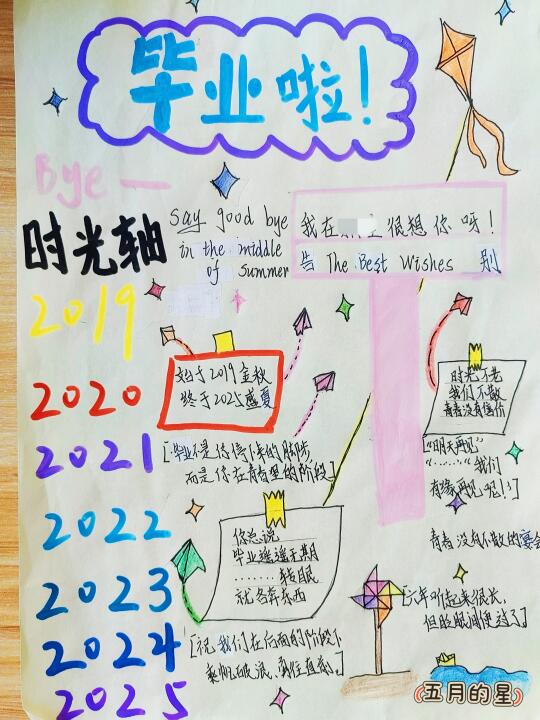 毕业啦!
Bye —
时光轴
2019
2020
2021
2022
2023
2024
2025
say good bye
in the middle
of Summer
我在 很想你呀!
告 The Best Wishes 别
始于2019金秋
终于2025盛夏
[毕业不是你停下来的脚步,
而是你在青春里的阶段]
时光不老
我们不散
青春没有售价
"明天再见"
"……"我们
有缘再见吧!:]
青春没有不散的宴会
你总说
毕业遥遥无期
………转眼
就各奔东西
[六年听起来很长,
但眨眼间便过了]
[祝我们在后面的阶段下
乘帆破浪、勇往直前。]
五月的星